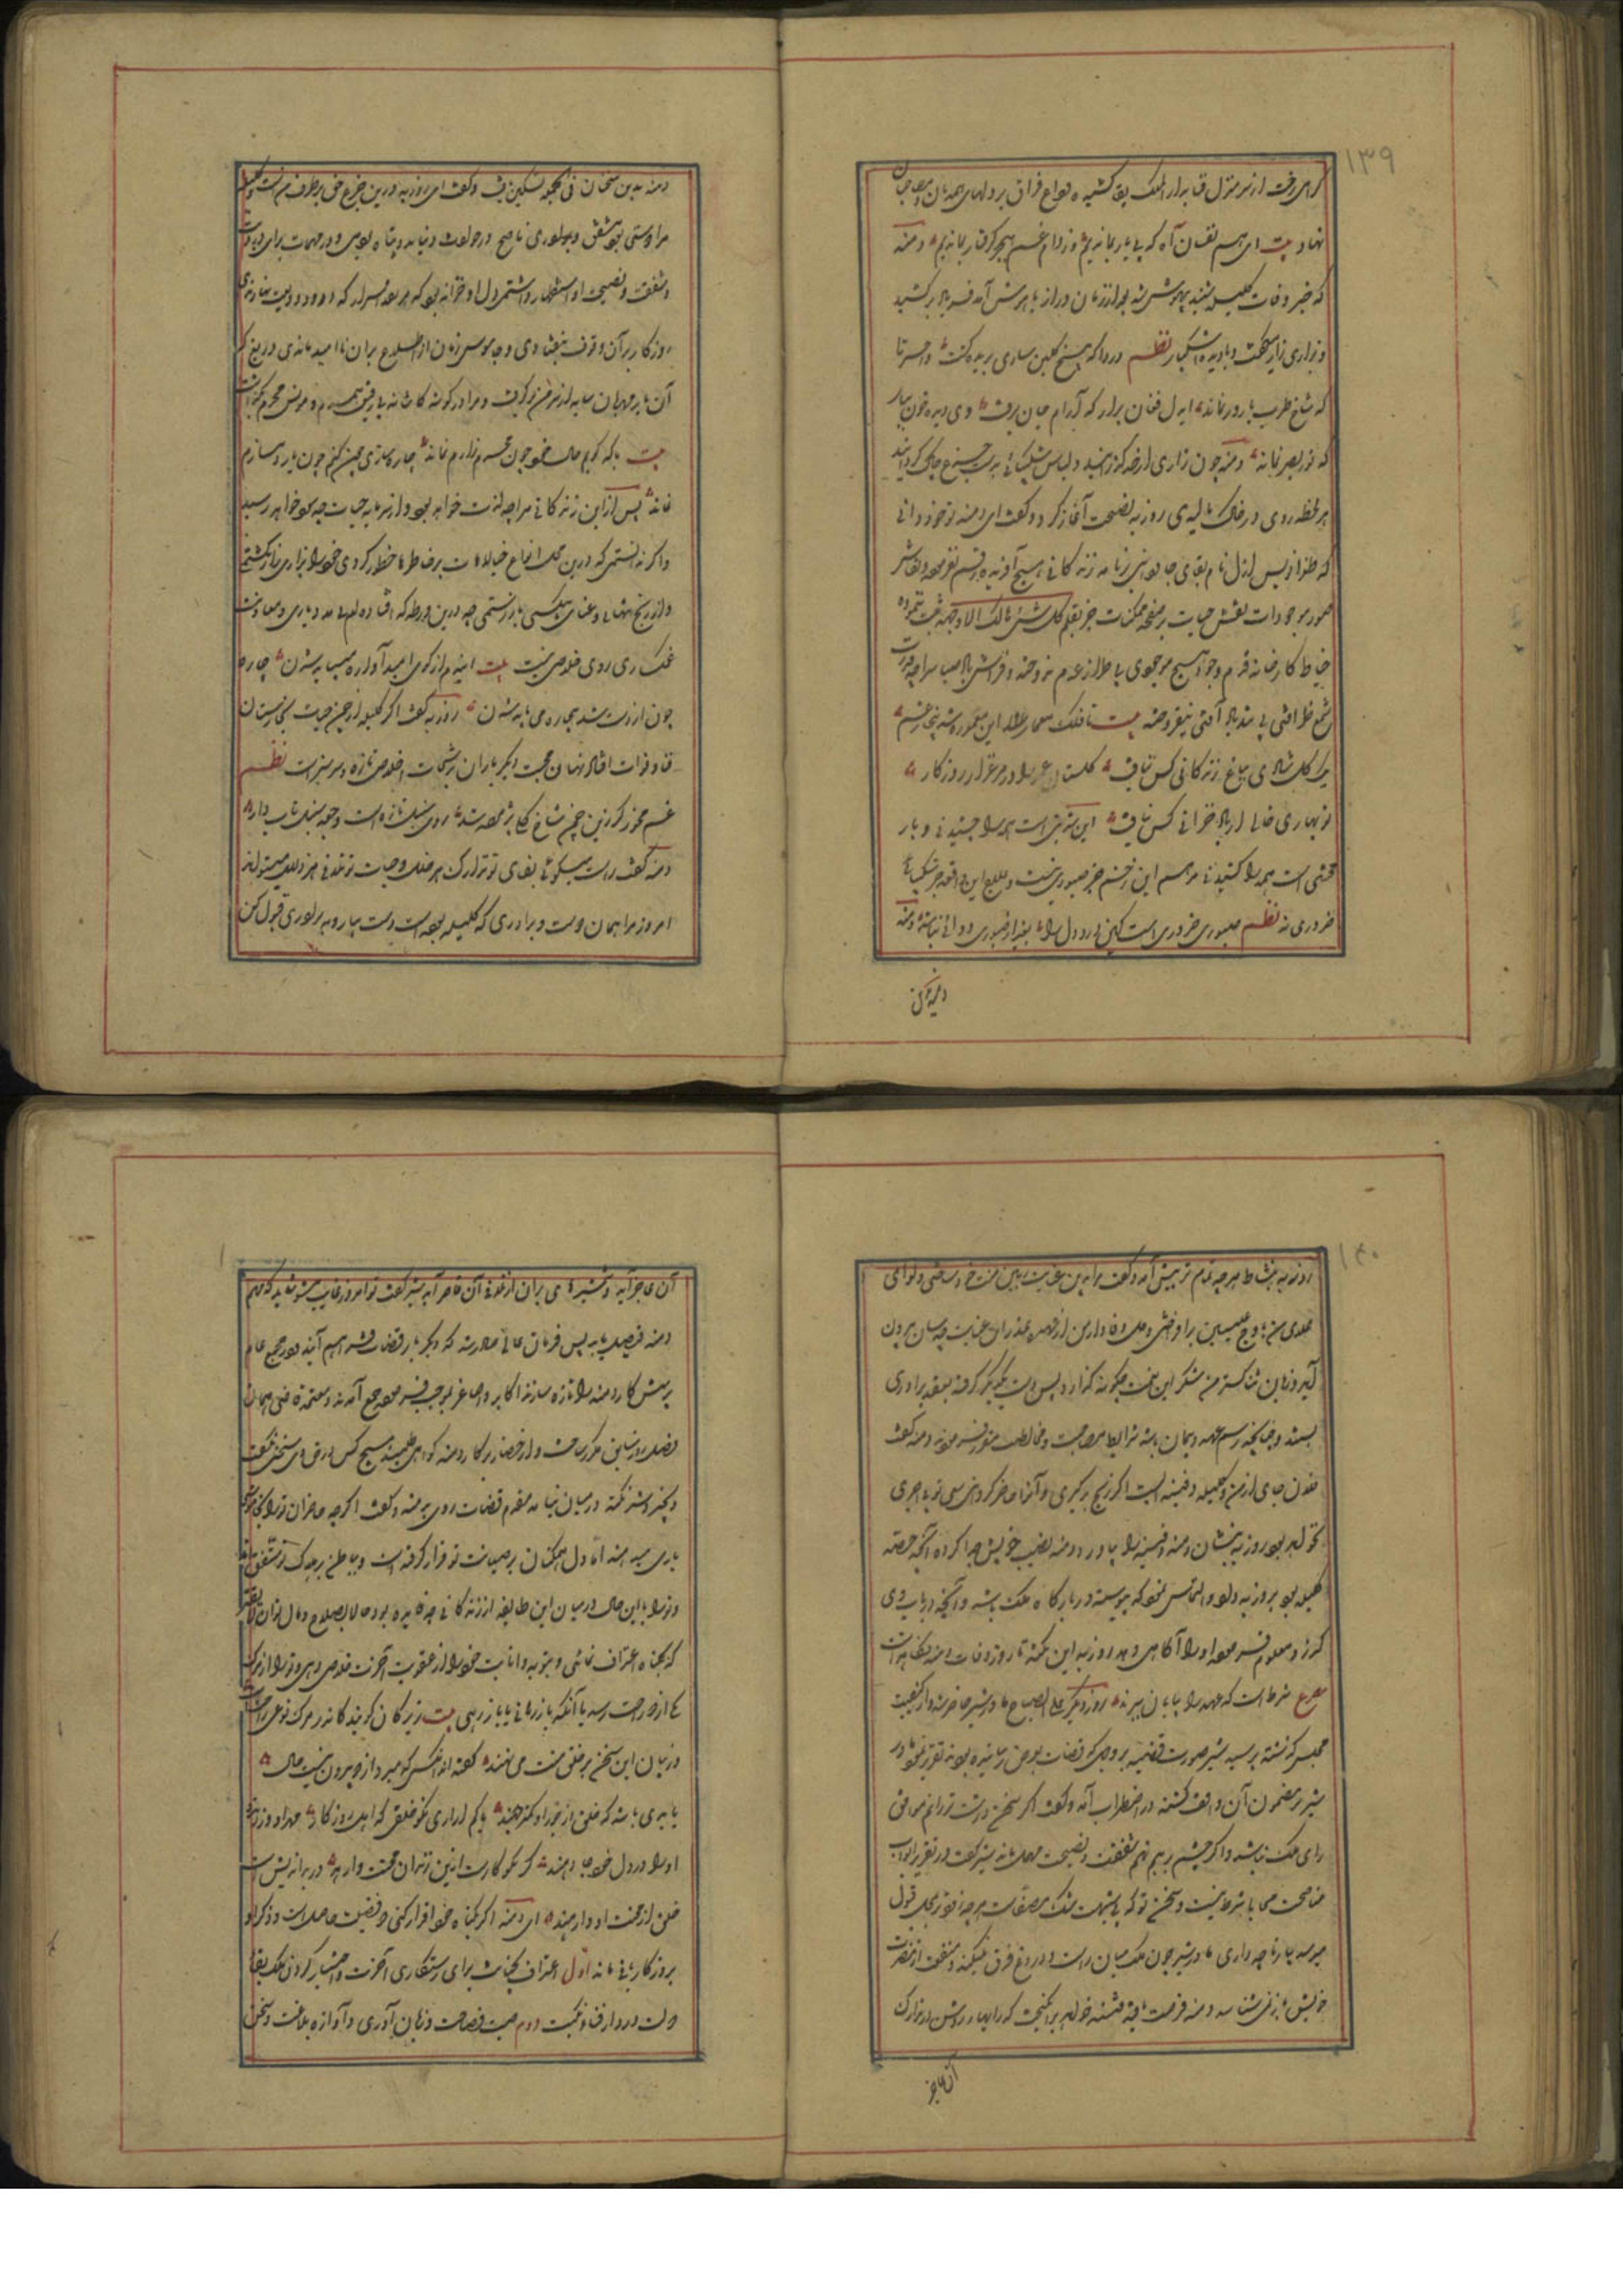 ۱۳۹
گرامی رخت از سر منزل فنا بدار الملک بقا کشیده و داغ فراق بر دلهای همدمان و مصاحبان
نهاد بیت ای همنفسان آه که بی یار بماندیم در دام غم هجر گرفتار بماندیم دمنه
که خبر وفات کلیله شنید بیهوش شد بعد از زمان دراز با هوش آمد فریاد برکشید
و بزاری زار میگفت و با دیده اشکبار نظم دردا که شاخ گلبن شادی بریده گشت واحسرتا
که شاخ طرب بارور نماند ایدل فغان برار که آرام جان برفت وی دیده خون ببار
که نور بصر نماند دمنه چون زاری از حد گذرانید و لباس شکیبائی بدست جزع چاک گردانید
هر لحظه روی در خاک مالیدی روزبه نصیحت آغاز کرد و گفت ای دمنه تو خود دانی
که طغرا نویس ازل نام بقای جاودانی بر نامه زندگانی هیچ آفریده رقم نفرموده و نقاش
صور موجودات نقش حیات بر صفحه ممکنات جز بقلم کل شیء هالک الا وجهه ثبت ننموده
خیاط کارخانه قدم وجود هیچ موجودی بی طراز عدم ندوخته و فراش بالا صبا سراچه قدرت
شمع ظرافتی بی تند باد آفتی نیفروخته بیت تا فلک معمار این معموره شد پنجار غم
یک گل شادی بباغ زندگانی کس نیافت گلستان عمر را و مرغزار روزگار
نوبهاری خالی از باد خزانی کس نیافت این شربتی است همه را چشیدنی و بار
محنتی است همه را کشیدنی مرهم این زخم جز صبوری نیست و علاج این واقعه جز شکیبائی
ضروری نه نظم صبوری ضروری است کین درد دل را بغیر از صبوری دوائی نباشد دمنه
دمنه بدین
دمنه بدین سخنان فی الجمله تسکین یافت و گفت ای روزبه درین جزع حق بطرف من است کلیله
مرا دوستی بود مشفق و برادری ناصح در حوادث پناه بودی و در مهمات برای
و شفقت و نصیحت او استظهار داشتمی دل او خزانه بود که هر نقد اسرار که درو ودیعت نهاده
روزگار بر آن وقوف نیفتادی و جاسوس زمان از اطلاع بران ناامید ماندی دریغ که
آن یار مهربان سایه از سر من برگرفت و مرا در گوشه کاشانه بی رفیق همدم و مونس محرم بگذاشت
بیت با که گویم حال خود چون محرم رازم نماند چاره سازی چون کنم چون یار دمسازم
نماند پس ازین زندگانی مرا چه لذت خواهد بود و از سرمایه حیات چه سود خواهد رسید
و اگر نه آنستی که درین محل انواع خیالات بر خاطرها خطور کردی خود را بزاری زار بکشتمی
و از رنج تنهائی و عنای بیکسی باز رستمی چه درین ورطه که افتاده ام بی مدد یاری و معاونت
غمگساری روی خلاصی نیست بیت اینم از کوی امید آواره میباید شدن چاره
چون از دست شد بیچاره می باید شدن روزبه گفت اگر کلیله از چمن حیات بخارستان
فنا و فوات افتاد نهال محبت دیگر یاران برشحات اخلاص تازه و سرسبز است نظم
غم مخور گر زین چمن شاخ گلی پژمرده شد روی سنبل تازه است و جعد سنبل تاب دار
دمنه گفت راست میگوئی بقای تو تدارک هر خلل و حیات تو تلافی هر زلل میتواند
امروز مرا همان دوست و برادری که کلیله بوده است دست بیار و به برادری قبول کن
۱۴۰
روزبه بنشاط هر چه تمام تر پیش آمد و گفت مرا بدین عنایت رهین منت خود ساختی و لوای
بعدی من باوج علیین برافراختی و ملک وفاداری من از عهده عذر این عنایت چه سان بیرون
آید و زبان شکسته من شکر این نعمت چگونه گذارد پس دست یکدیگر گرفته بعقد برادری
بستند و چنانچه رسم عهد و پیمان باشد شرایط مصاحبت و مخالطت مقرر فرمودند دمنه گفت
فلان جای از من و کلیله دفینه است اگر رنج برگیری و آنرا حاضر گردانی سعی تو بی اجری
نخواهد بود روزبه بنشان دمنه دفینه را بیاورد دمنه نصیب خویش جدا کرده آنچه حصه
کلیله بود بروزبه داد و التماس نمود که پیوسته در بارگاه ملک باشد و آنچه در باب وی
گذرد معلوم فرموده او را آگاهی دهد روزبه این نکته تا روز وفات دمنه نگاهداشت
مصرع شرط است که عهد را بپایان ببرند روز دیگر علی الصباح مادر شیر حاضر شد و از کیفیت
مجلس گذشته پرسید شیر صورت قضیه بر وجهی که قضات بعرض رسانیده بودند تقریر نمود مادر
شیر بر مضمون آن واقف گشته در اضطراب آمد و گفت اگر سخن درشت تر رانم موافق
رای ملک نباشد و اگر چشم بر هم نهم شفقت و نصیحت مهمل ماند شیر گفت در تقریر ابواب
مناصحت محابا شرط نیست و سخن تو که بی شبهت شک مصفاست هر چه زودتر بمحل قبول
میرسد بیار تا چه داری مادر شیر گفت ملک میان راست و دروغ فرق نمیکند و منفعت از مضرت
خویش باز نمی شناسد دمنه فرصت یافته فتنه خواهد برانگیخت که رایها روشن در تدارک
آن عاجز
آن عاجز آید و شمشیرهای بران از دفع آن قاصر آید شیر گفت تو امروز غایب مشو شاید که مهم
دمنه فیصل یابد پس فرمان عالی صادر شد که دیگر بار قضات فراهم آیند و در مجمع عام
پرسش کار دمنه را تازه سازند اکابر و اصاغر بموجب فرموده جمع آمدند و معتمد قاضی همان
فصل روز سابق مکرر ساخت و از حضار در کار دمنه گواهی طلبید هیچکس در حق وی سخنی نگفت
و بخیر و شر نکته در میان نیامد مقدم قضات روی بدمنه کرد و گفت اگر چه حاضران ترا بخاموشی
یاری میدهند اما دل همگنان بر خیانت تو قرار گرفته است و بباطن بر هلاک تو متفق اند
و ترا با این حال در میان این طایفه از زندگانی چه فایده بود و حالا بصلاح و مال توان لایقتر
که بگناه اعتراف نمائی و بتوبه و انابت خود را از عقوبت آخرت خلاصی دهی و ترا از مرگ
یکی از دو راحت رسد یا آنکه باز رهانی یا باز رهی بیت زیرکان گویند کاندر مرگ نوعی راحت است
در بیان این سخن بر خلق منت می نهند گفته اند آنکس که میرد از دو بیرون نیست حال
یا بدی باشد که خلق از جور او کمتر جهند یا کم آزاری نکو خلقی که اهل روزگار مهر او ورزند و
او را در دل خود جا دهند گر نکوکار است ازین زندان محنت وارهد ور بداندیش است
خلق از محنت او وارهند ای دمنه اگر بگناه خود اقرار کنی دو فضیلت حاصل است و ذکر او
بر روزگار باقی ماند اول اعتراف بجنایت برای رستگاری آخرت و اختیار کردن ملک بقا
دولت در دار فنا و نکبت دوم صیت فصاحت و زبان آوری و آوازه بلاغت و سخن